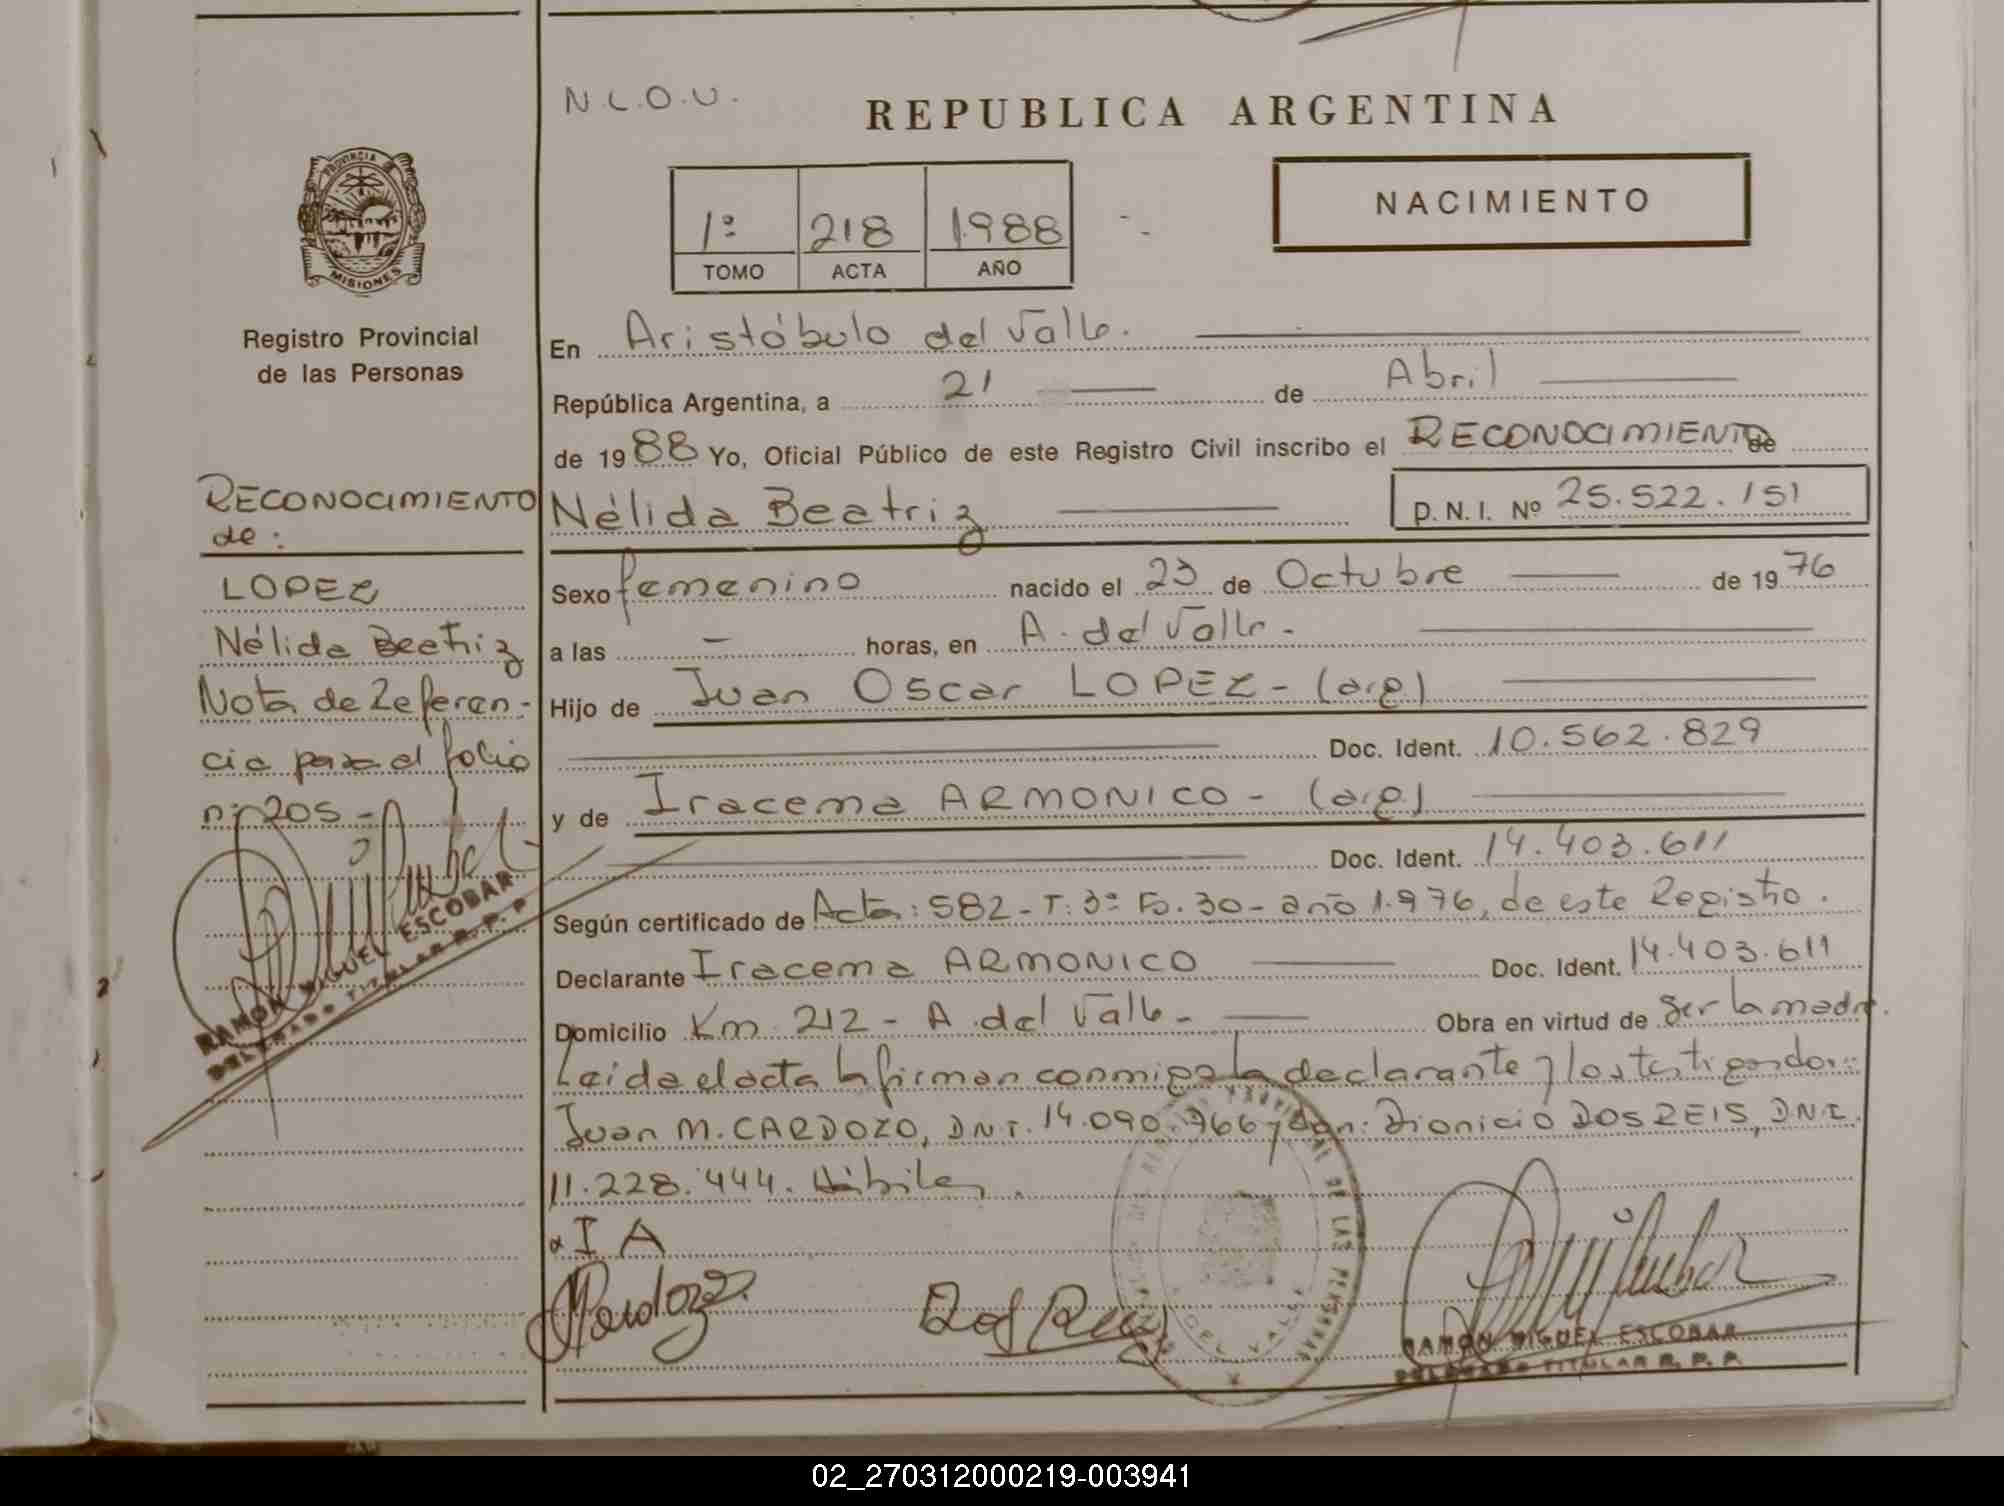 N.L.O.U.
REPUBLICA ARGENTINA
PROVINCIA DE
MISIONES
1º 218 1988
TOMO ACTA AÑO
NACIMIENTO
Registro Provincial
de las Personas
En Aristóbulo del Valle.
República Argentina, a 21 de Abril
de 1988 Yo, Oficial Público de este Registro Civil inscribo el RECONOCIMIENTO de
Nélida Beatriz D.N.I. Nº 25.522.151
Sexo femenino nacido el 23 de Octubre de 1976
a las - horas, en A. del Valle.-
Hijo de Juan Oscar LOPEZ - (arg)
Doc. Ident. 10.562.829
y de Iracema ARMONICO - (arg)
Doc. Ident. 14.403.611
Según certificado de Acta: 582 - T: 3º Fo. 30 - año 1.976, de este Registro.
Declarante Iracema ARMONICO Doc. Ident. 14.403.611
Domicilio Km 212 - A. del Valle - Obra en virtud de ser la madre.
Leida el acta la firman conmigo la declarante y los testigos don:
Juan M. CARDOZO, DNI. 14.090.766 y don: Dionicio DOS REIS, D.N.I.
11.228.444. Hábiles.
I A
Dos Reis
RAMON MIGUEL ESCOBAR
DELEGADO TITULAR R. P. P.
RECONOCIMIENTO
de:
LOPEZ
Nélida Beatriz
Nota de Referen-
cia para el folio
nº 205 -
RAMON MIGUEL ESCOBAR
DELEGADO TITULAR R. P. P.
02_270312000219-003941